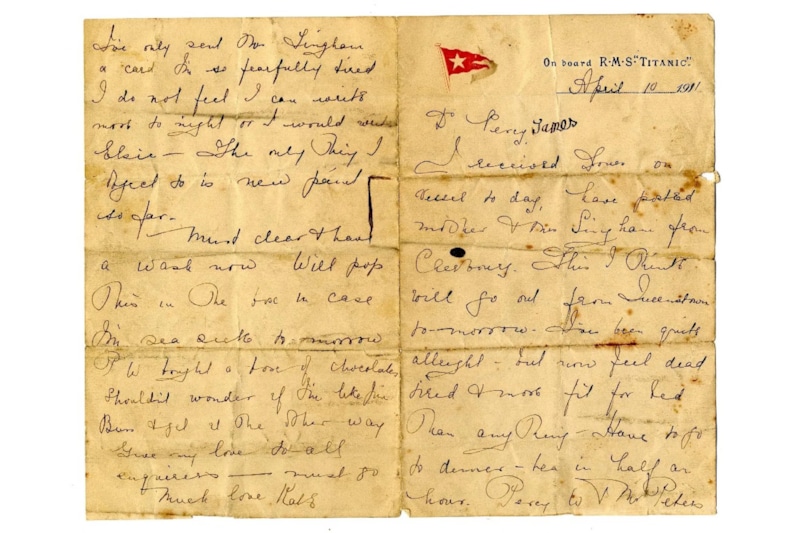 On board R·M·S "TITANIC".
April 10 1911
Dr Percy James
I received yours on
vessel to day, have posted
mother & Mrs Lingham from
Cherbourg. This I think
will go out from Queenstown
to-morrow. I've been quite
allright - but now feel dead
tired & more fit for bed
than anything - Have to go
to dinner - tea in half an
hour. Percy W & Mr Peters
I've only sent Mrs Lingham
a card I'm so fearfully tired
I do not feel I can write
more to night or I would write
Elsie - The only thing I
object to is new paint
so far -
Must clear & have
a wash now Will pop
this in the box in case
I'm sea sick to-morrow
P W bought a box of chocolates
Shouldn't wonder if I'm like Jim
Buss & get it the other way
Give my love to all
enquirers — must go
Much love Kate